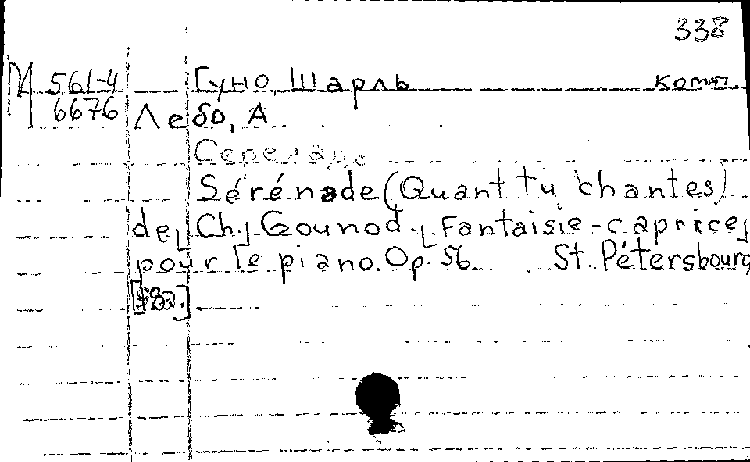 338
М 561-4 Гуно, Шарль комп
6676 Лебо, А
Серенада
Sérénade (Quant tu chantes)
de Ch. Gounod, Fantaisie-caprice
pour le piano. Op. 56. St. Pétersbourg